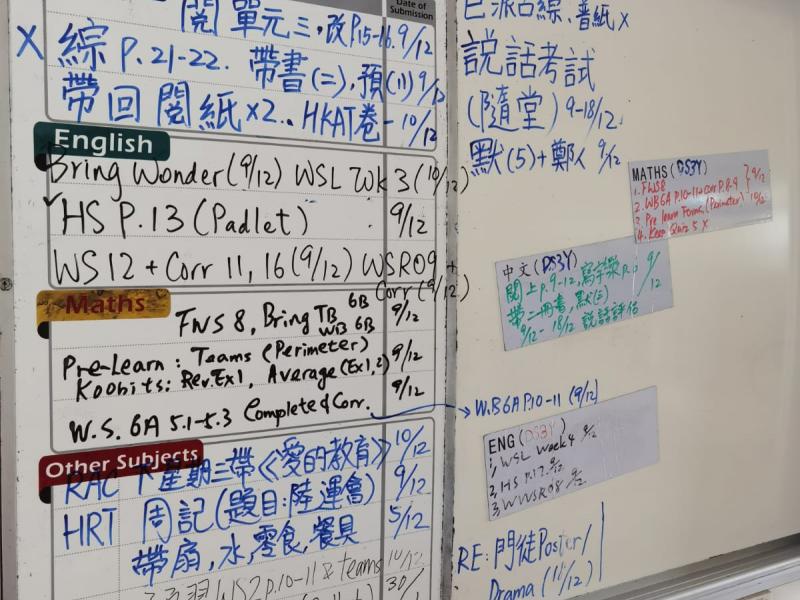 閱 單元三,改P.15-16. 9/12
Date of
Submission
X 綜 P.21-22. 帶書(二),預(11) 9/12
帶回閱紙x2., HKAT卷- 10/12
English
Bring Wonder (9/12) WSL WK 3 (10/12)
✓HS P.13 (Padlet) 9/12
WS12 + Corr 11, 16 (9/12) WSR09 +
Corr (9/12)
Maths
FWS 8, Bring TB 6B 9/12
WB 6B
Pre-Learn : Teams (Perimeter) 9/12
Koobits: Rev.Ex1, Average (Ex1,2)
W.S. 6A 5.1-5.3 Complete & Corr. 9/12
→ W.B 6A P.10-11 (9/12)
Other Subjects
RAC 下星期三帶《愛的教育》 10/12
HRT 周記(題目:陸運會) 9/12
帶扇,水,零食,餐具 5/12
WS2 p.10-11 & teams 10/12
30/
說話考試
(隨堂) 9-18/12
默(5)+鄭人 9/12
MATHS (DS3Y)
1. FWS8
2. WB6A P.10-11+corr P.8-9 } 9/12
3. Pre learn Forms (Perimeter) 10/12
4. Keep Quiz 5 X
中文 (DS3Y)
閱上P.9-12,
帶二冊書,默(三)
9/12- 18/12 說話評估
9/12
ENG (DS3Y)
1, WSL Week 4 9/12
2, HS P.17. 9/12
3, WWSR08 9/12
RE: 門徒Poster/
Drama (11/12)